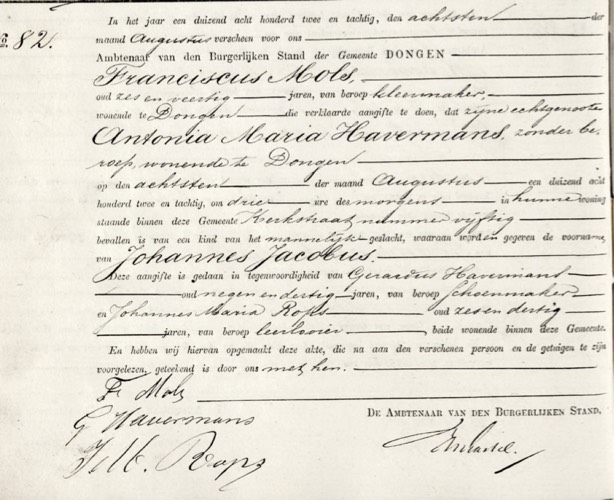 No. 82.
In het jaar een duizend acht honderd twee en tachtig, den achtsten der
maand Augustus verscheen voor ons
Ambtenaar van den Burgerlijken Stand der Gemeente DONGEN
Franciscus Mols,
oud zes en veertig jaren, van beroep kleermaker,
wonende te Dongen die verklaarde aangifte te doen, dat zijne echtgenoote
Antonia Maria Havermans, zonder be-
roep, wonende te Dongen
op den achtsten der maand Augustus een duizend acht
honderd twee en tachtig, om drie ure des morgens in hunne woning
staande binnen deze Gemeente Kerkstraat nummer vijftig
bevallen is van een kind van het mannelijk geslacht, waaraan worden gegeven de voorname
van Johannes Jacobus.
Deze aangifte is gedaan in tegenwoordigheid van Gerardus Havermans
oud negen en dertig jaren, van beroep Schoenmaker
en Johannes Maria Rops oud zes en dertig
jaren, van beroep leerlooier beide wonende binnen deze Gemeente.
En hebben wij hiervan opgemaakt deze akte, die na aan den verschenen persoon en de getuigen te zijn
voorgelezen, geteekend is door ons met hen.
Fr Mols
G Havermans
J. M. Rops
DE AMBTENAAR VAN DEN BURGERLIJKEN STAND,